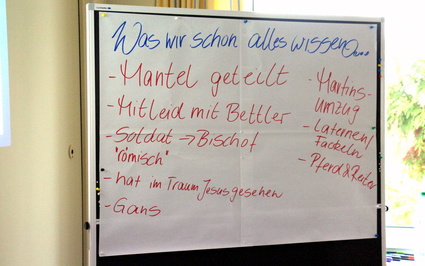 Was wir schon alles wissen...
- Mantel geteilt
- Mitleid mit Bettler
- Soldat → Bischof
"römisch"
- hat im Traum Jesus gesehen
- Gans
- Martins-
umzug
- Laternen/
Fackeln
- Pferd & Reiter